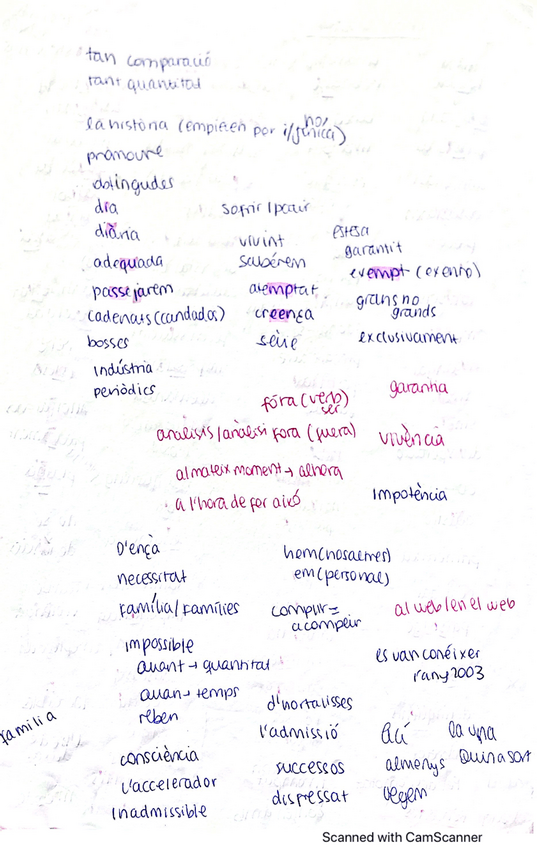 tan comparació
tant quantitat
la història (empiecen por i/ no, jenica)
promoure
distingudes
dia
sofrir/patir
diària
vivint
estesa
garantit
adequada
sabérem
exempt (exento)
passejarem
atemptat
grans no grands
cadenats (candados)
creença
bosses
seure
exclusivament
indústria
periòdics
fóra (verb ser)
garantia
anàlisis/anàlisi fora (fuera)
vivència
al mateix moment → alhora
a l'hora de fer això
impotència
D'ençà
hem (nosaltres)
necessitat
em (personal)
família/famílies
complir = acomplir
al web/en el web
impossible
quant → quantitat
es van conéixer
l'any 2003
quan → temps
reben
família
d'hortalisses
l'admissió
ací
la una
consciència
successos
almenys
Quina sort
L'accelerador
disfressat
vegem
inadmissible
Scanned with CamScanner